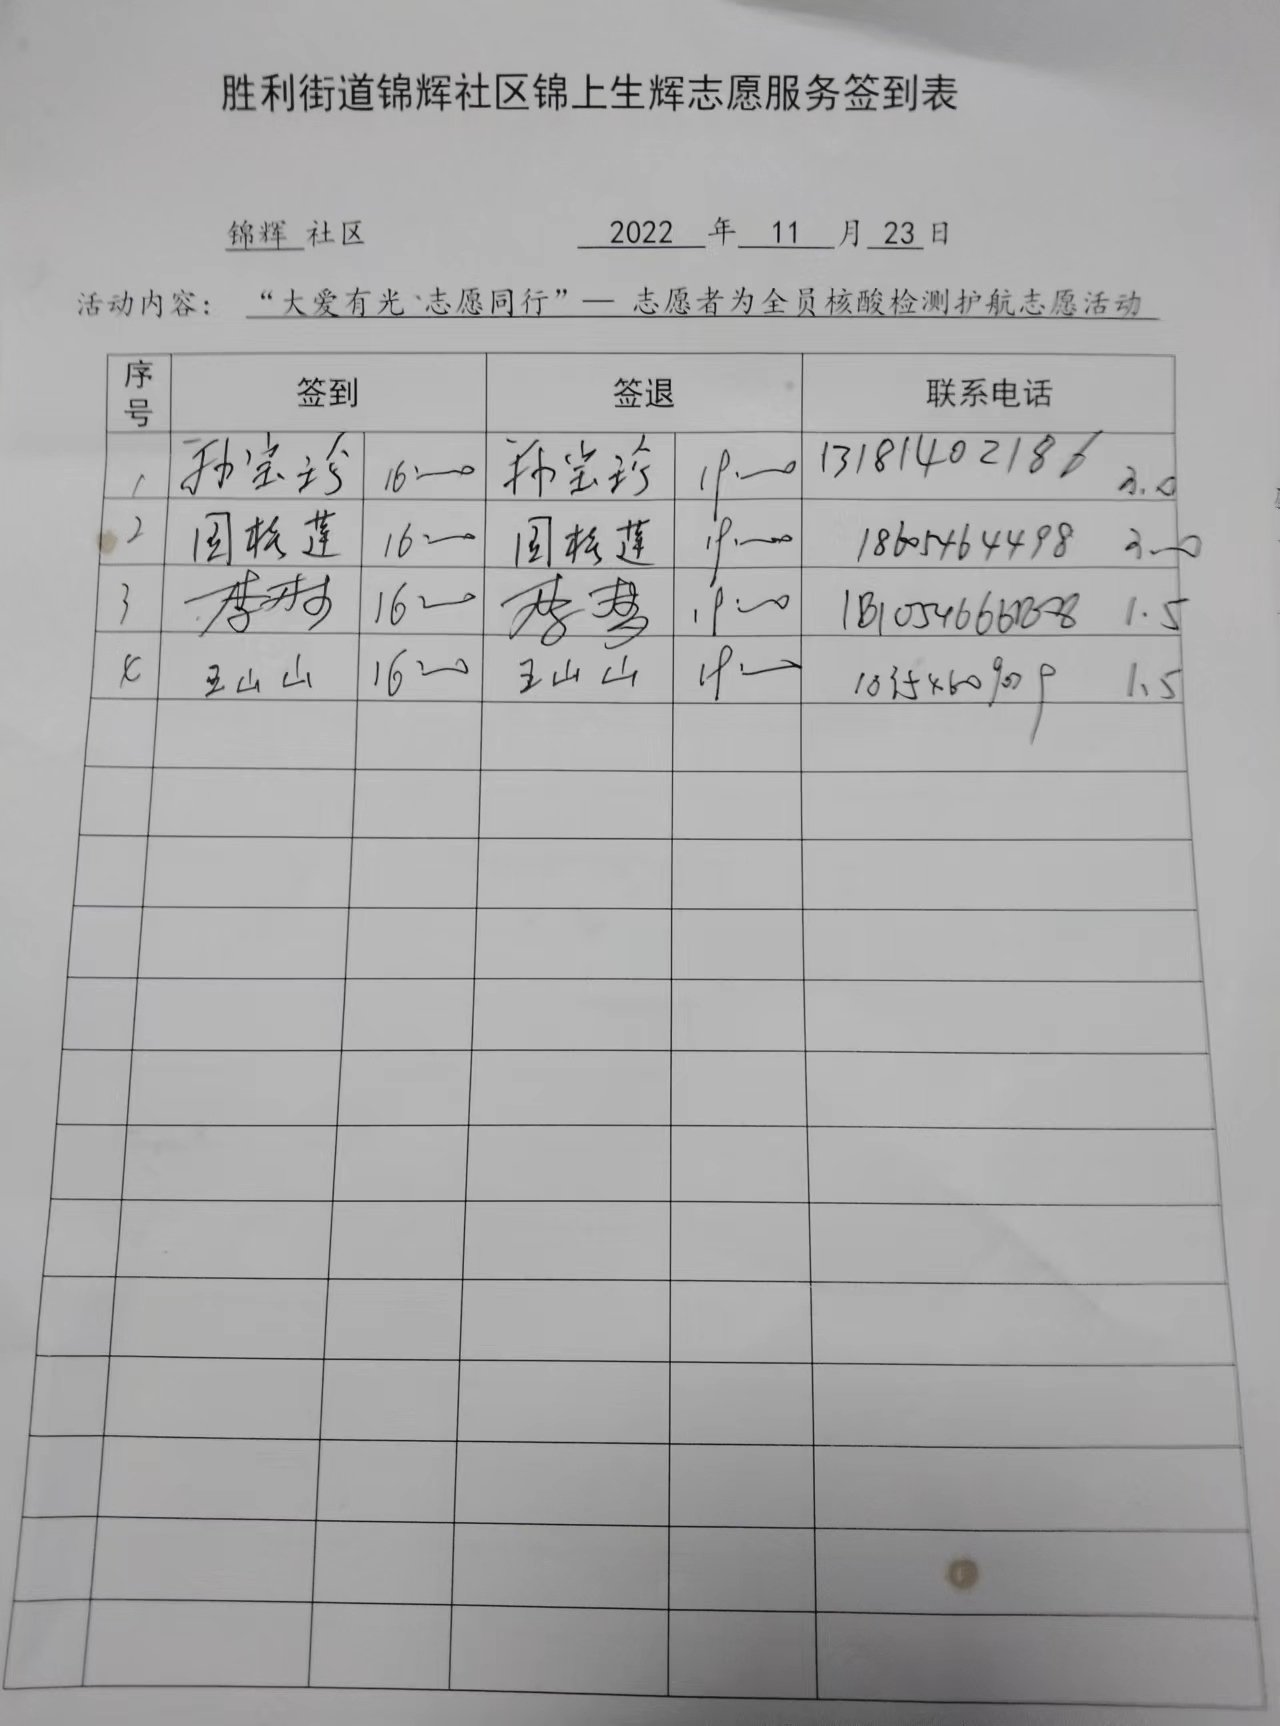 胜利街道锦辉社区锦上生辉志愿服务签到表
锦辉 社区 2022 年 11 月 23 日
活动内容： “大爱有光·志愿同行”— 志愿者为全员核酸检测护航志愿活动
序号 签到 签退 联系电话
1 孙宝珍 16:00 孙宝珍 19:00 13181402186 3.0
2 周桂莲 16:00 周桂莲 19:00 18605464498 3.0
3 16:00 19:00 1.5
4 王山山 16:00 王山山 19:00 1.5